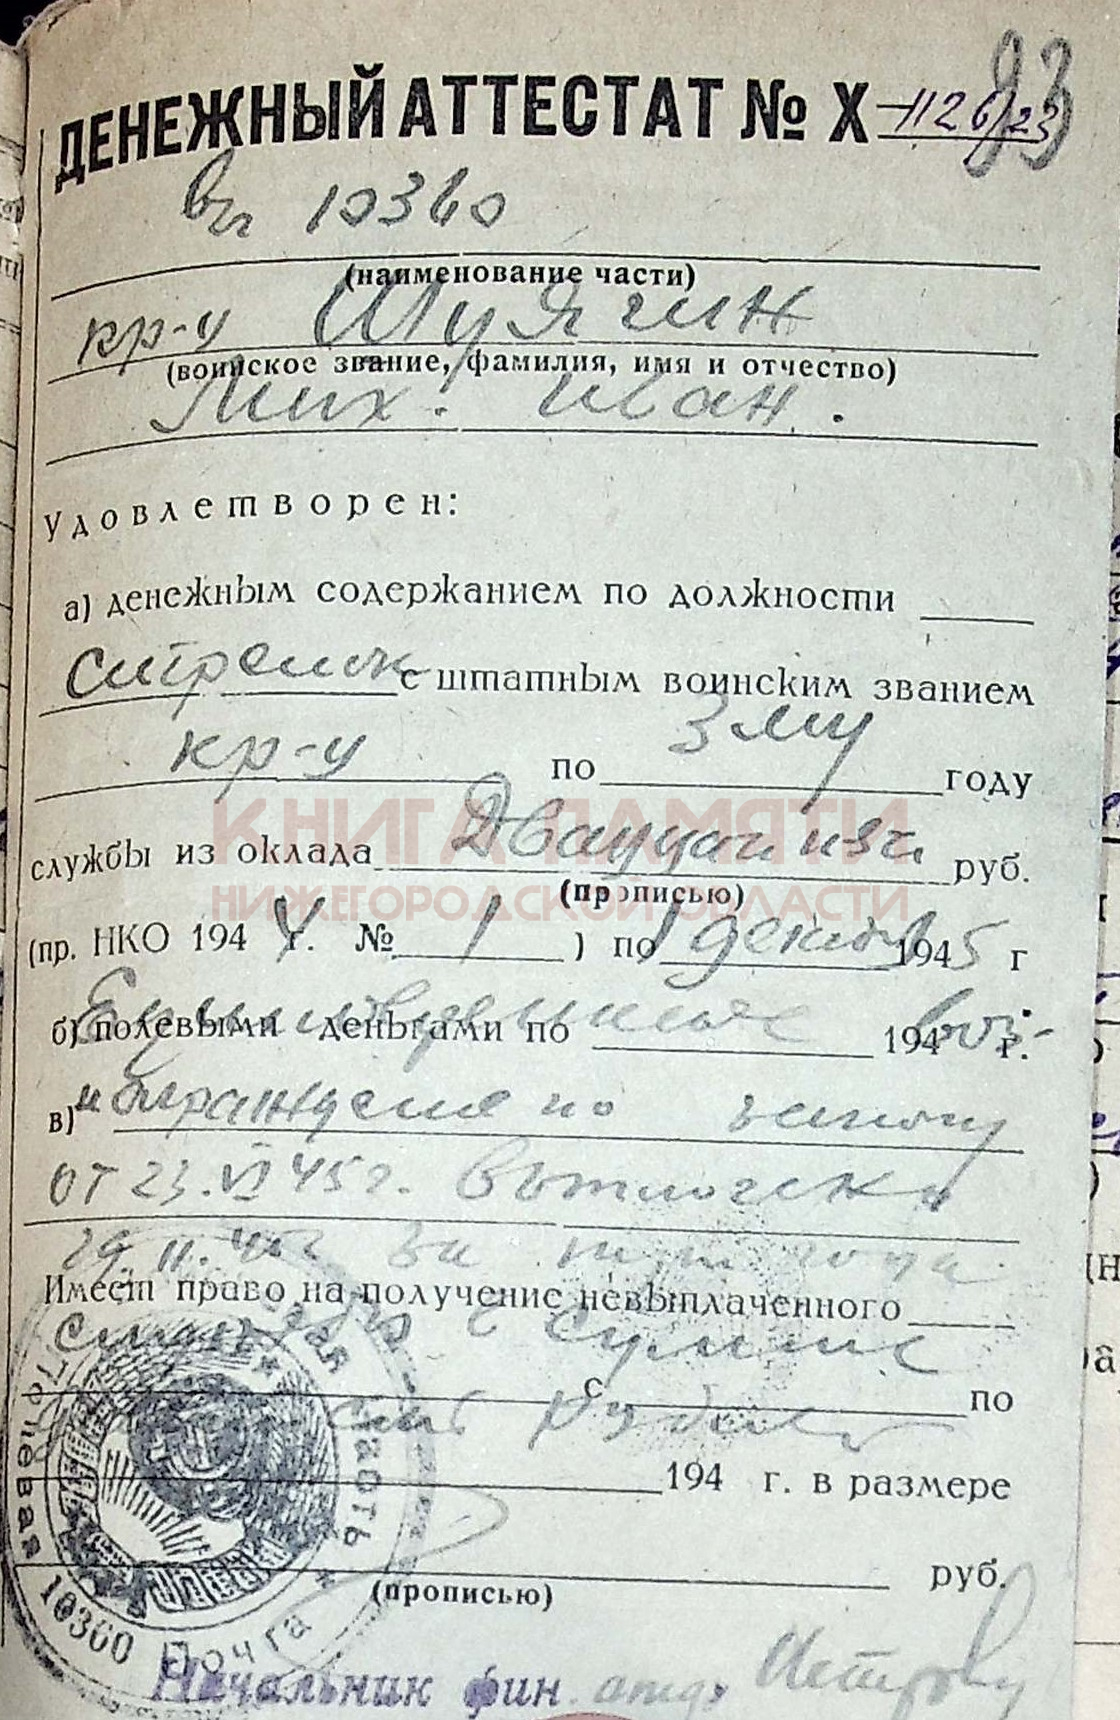 93
ДЕНЕЖНЫЙ АТТЕСТАТ № Х-1126/23
вч 10360
(наименование части)
кр-у Шулягин
(воинское звание, фамилия, имя и отчество)
Мих. Иван.
Удовлетворен:
а) денежным содержанием по должности
Стрелок с штатным воинским званием
кр-у по 3му году
службы из оклада Двадцати пяти руб.
(прописью)
(пр. НКО 194 4 г. № 1 ) по 1 декабр 1945 г
Единовременное воз-
б) полевыми деньгами по 194 г.
в) награждение по закону
от 23.VI 45г. выплочено
29.11.45г за три года
Имеет право на получение невыплаченного
службы в сумме
с по
рублей
194 г. в размере
руб.
(прописью)
Полевая Почта 10360 часть
Начальник фин. отд.
КНИГА ПАМЯТИ
НИЖЕГОРОДСКОЙ ОБЛАСТИ